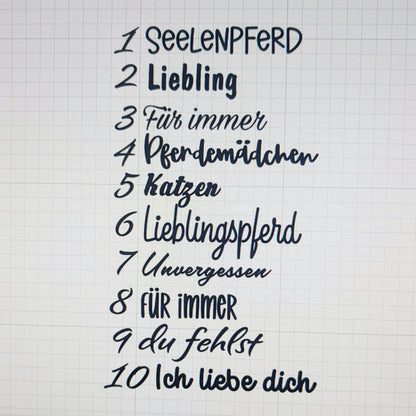 1 SeeLeNPFeRD
2 Liebling
3 Für immer
4 Pferdemädchen
5 Katzen
6 Lieblingspferd
7 Unvergessen
8 FÜR immeR
9 du fehlst
10 Ich liebe dich